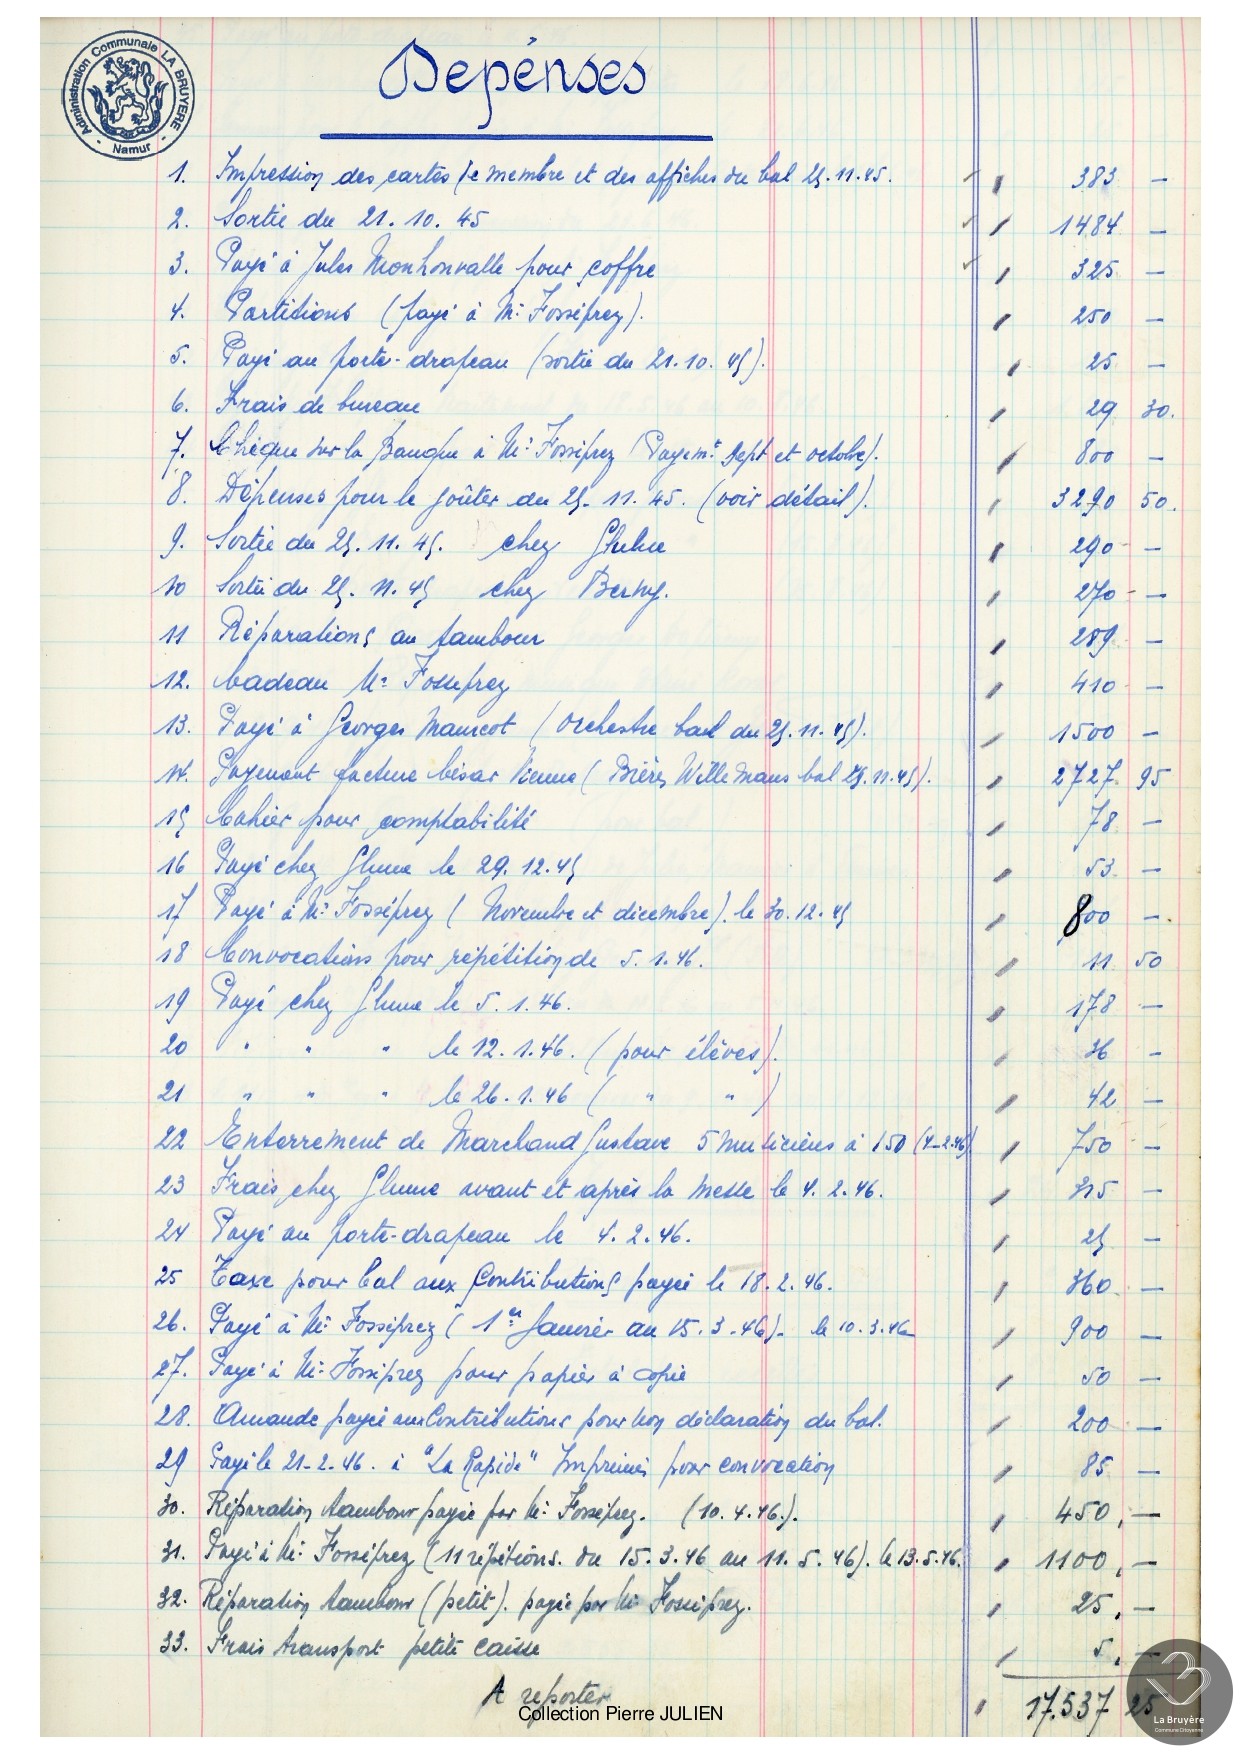 Administration Communale LA BRUYERE - Namur -
Depénses
1. Impression des cartes de membre et des affiches du bal 25.11.45. 383 —
2. Sortie du 21.10.45 1484 —
3. Payé à Jules Monhonvalle pour coffre 325 —
4. Partitions (payé à Mr Fosséprez). 250 —
5. Payé au porte-drapeau (sortie du 21.10.45). 25 —
6. Frais de bureau 29 30.
7. Chèque sur la Banque à Mr Fosséprez (Payemt Sept et octobre). 800 —
8. Dépenses pour le goûter du 25.11.45. (voir détail). 3290 50.
9. Sortie du 25.11.45. chez 290 —
10 Sortie du 25.11.45 chez Berny. 270 —
11 Réparations au tambour 289 —
12. Cadeau Mr Fosséprez 410 —
13. Payé à Georges Mauscot (Orchestre bal du 25.11.45). 1500 —
14. Payement facture César Vienne (Bières Willemans bal 25.11.45). 2727 95
15 Cahier pour comptabilité 78 —
16 Payé chez Glume le 29.12.45 53 —
17 Payé à Mr Fosséprez (Novembre et décembre). le 30.12.45 800 —
18 Convocations pour répétition de 5.1.46. 11 50
19 Payé chez Glume le 5.1.46. 178 —
20 " " " le 12.1.46. (pour élèves). 36 —
21 " " " le 26.1.46 ( " " ) 42 —
22 Enterrement de Marchand Gustave 5 musiciens à 150 (4-2-46) 750 —
23 Frais chez Glume avant et après la messe le 4.2.46. 315 —
24 Payé au porte-drapeau le 4.2.46. 25 —
25 Taxe pour bal aux Contributions payée le 18.2.46. 360 —
26. Payé à Mr Fosséprez (1er Janvier au 15.3.46). le 10.3.46 900 —
27. Payé à Mr Fosséprez pour papier à copie 50 —
28. Amande payée aux Contributions pour non déclaration du bal. 200 —
29 Payé le 21-2.46. à "La Rapide" Imprimés pour convocation 85 —
30. Réparation tambour payée par Mr Fosséprez. (10.4.46.). 450, —
31. Payé à Mr Fosséprez (11 répétions. du 15.3.46 au 11.5.46). le 13.5.46. 1100, —
32. Réparation tambour (petit). payée par Mr Fosséprez. 25, —
33. Frais transport petite caisse 5, —
A reporter 17.537 25
Collection Pierre JULIEN
La Bruyère
Commune Citoyenne